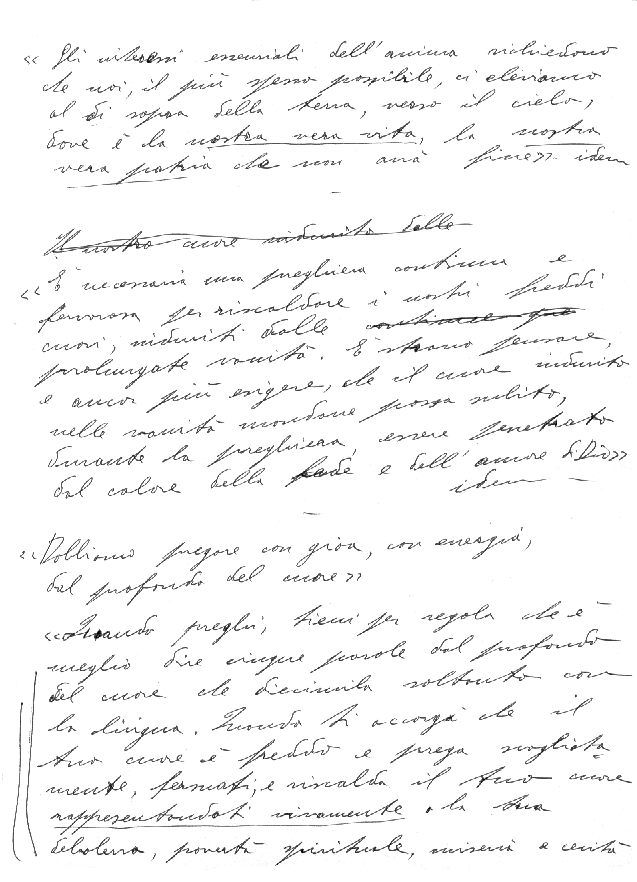 « Gli interessi essenziali dell'anima richiedono
che noi, il più spesso possibile, ci eleviamo
al di sopra della terra, verso il cielo,
dove è la nostra vera vita, la nostra
vera patria che non avrà fine» idem
—
Il nostro cuore indurito dalle
« È necessaria una preghiera continua e
fervorosa per riscaldare i nostri freddi
cuori, induriti dalle continue
prolungate vanità. È strano pensare,
e ancor più esigere, che il cuore indurito
nelle vanità mondane possa subito,
durante la preghiera, essere penetrato
dal calore della fede e dell'amore di Dio»
idem —
—
«Dobbiamo pregare con gioia, con energia,
dal profondo del cuore»
«Quando preghi, tieni per regola che è
meglio dire cinque parole dal profondo
del cuore che diecimila soltanto con
la lingua. Quando ti accorgi che il
tuo cuore è freddo e prega svogliata-
mente, fermati, e riscalda il tuo cuore
rappresentandoti vivamente la tua
debolezza, povertà spirituale, miseria e cecità